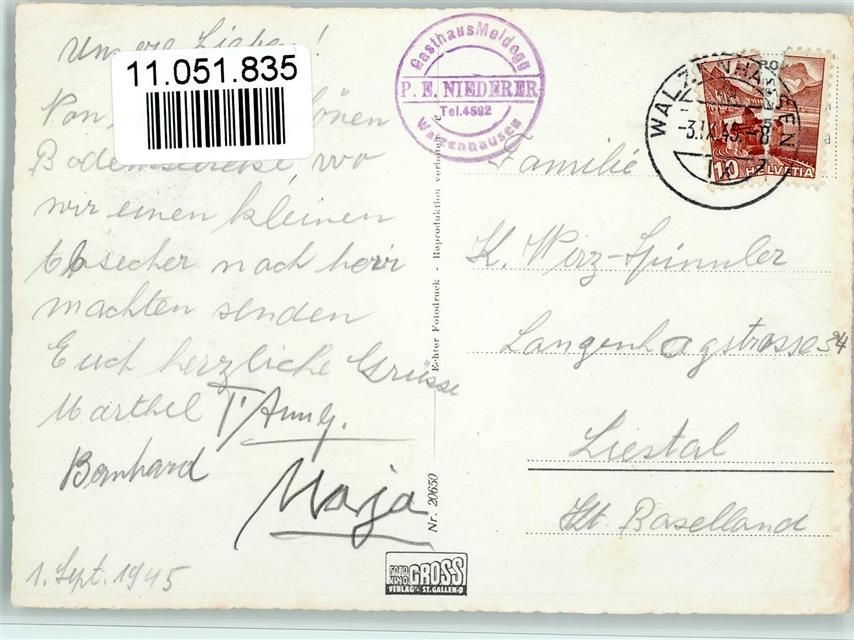 Unsere Lieben!
11.051.835
Von schönen
Bodenseereise, wo
wir einen kleinen
Abstecher nach hier
machten senden
Euch herzliche Grüsse
Marthel T'Anny.
Bernhard
Maja
1. Sept. 1945
Gasthaus Meldegg
P. E. NIEDERER
Tel. 4592
Walzenhausen
Echter Fotodruck - Reproduktion
Nr. 20650
FOTO
GROSS
VERLAG ST. GALLEN-O
WALZENHAUSEN
-3.IX.45.-8
10 HELVETIA
Familie
K. Wirz-Spinnler
Langenhagstrasse 34
Liestal
Kt. Baselland